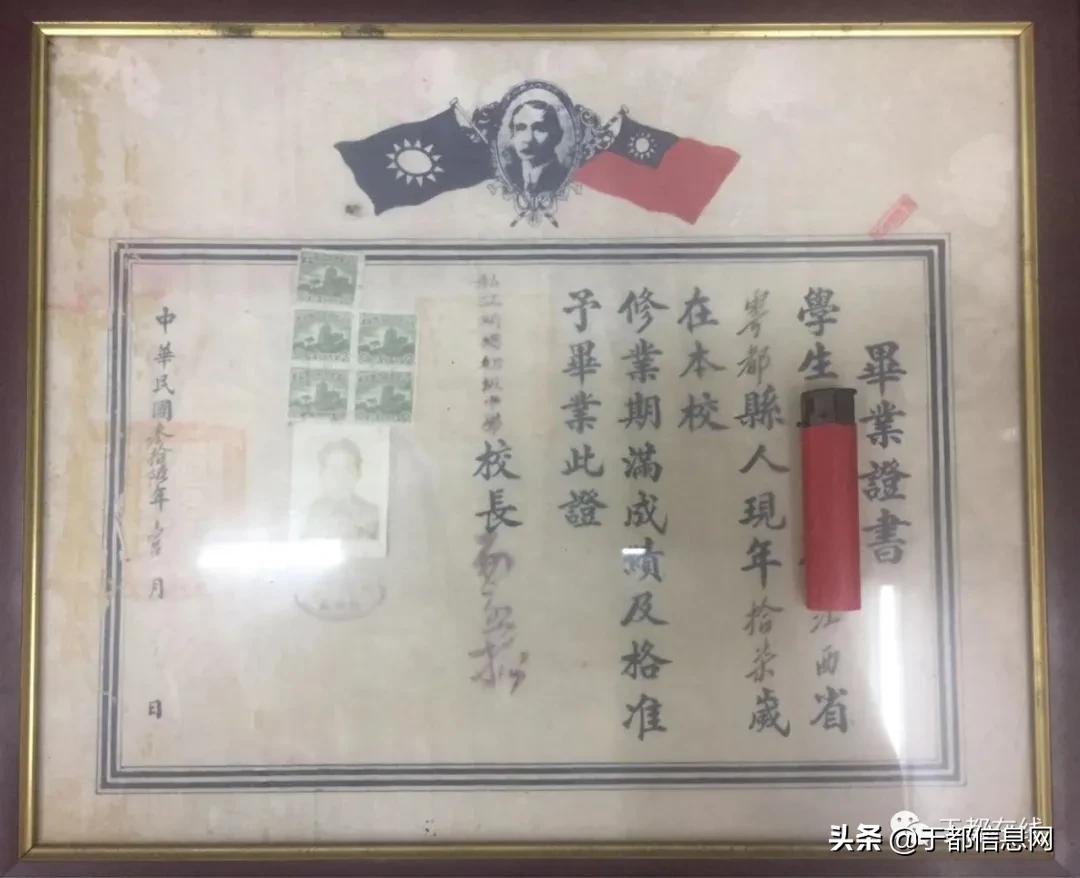 畢業證書
學生
江西省
雩都縣人現年拾柒歲
在本校
修業期滿成績及格准
予畢業此證
初級中學校長
中華民國叁拾伍年 月 日
于都在线
头条 @于都信息网